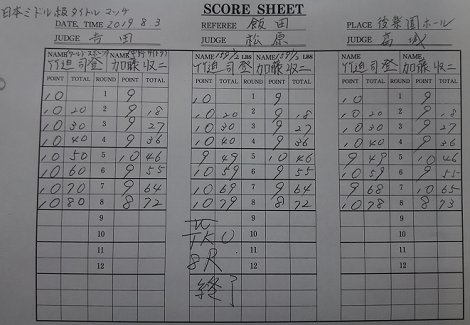 日本ミドル級タイトルマッチ
SCORE SHEET
DATE, TIME 2019 8 3 REFEREE 飯田 PLACE 後楽園ホール
JUDGE 吉田 JUDGE 松原 JUDGE 高城
NAME 竹迫司登 NAME 加藤収二 NAME 竹迫司登 LBS NAME 加藤収二 LBS NAME 竹迫司登 NAME 加藤収二
POINT TOTAL ROUND POINT TOTAL POINT TOTAL ROUND POINT TOTAL POINT TOTAL ROUND POINT TOTAL
10 1 9 10 1 9 10 1 9
10 20 2 9 18 10 20 2 9 18 10 20 2 9 18
10 30 3 9 27 10 30 3 9 27 10 30 3 9 27
10 40 4 9 36 10 40 4 9 36 10 40 4 9 36
10 50 5 10 46 9 49 5 10 46 9 49 5 10 46
10 60 6 9 55 10 59 6 9 55 10 59 6 9 55
10 70 7 9 64 10 69 7 9 64 9 68 7 10 65
10 80 8 8 72 10 79 8 8 72 10 78 8 8 73
9 9 9
10 TKO 10 10
11 8R 11 11
12 終了 12 12